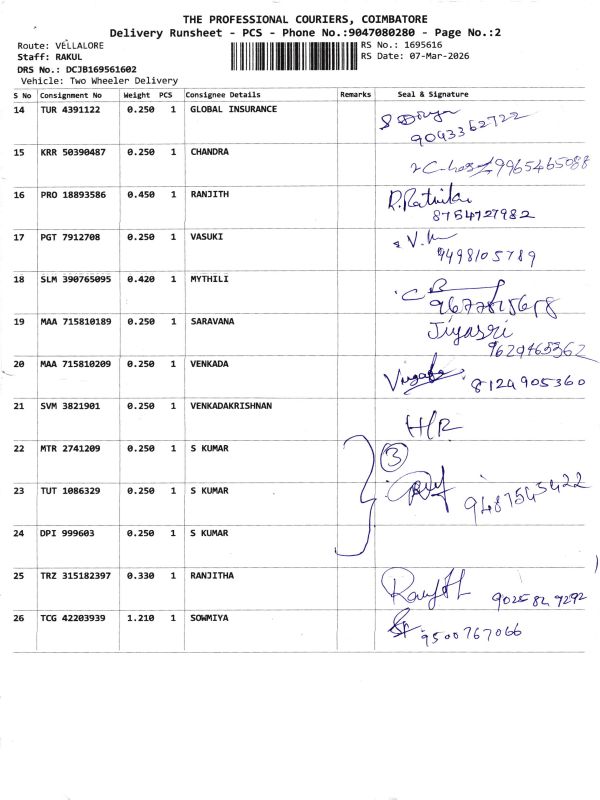 THE PROFESSIONAL COURIERS, COIMBATORE
Delivery Runsheet - PCS - Phone No.:9047080280 - Page No.:2
Route: VELLALORE
RS No.: 1695616
Staff: RAKUL
RS Date: 07-Mar-2026
DRS No.: DCJB169561602
Vehicle: Two Wheeler Delivery
S No Consignment No Weight PCS Consignee Details Remarks Seal & Signature
14 TUR 4391122 0.250 1 GLOBAL INSURANCE
9043362722
15 KRR 50390487 0.250 1 CHANDRA 9965465088
16 PRO 18893586 0.450 1 RANJITH R.Ratnika
8754727982
17 PGT 7912708 0.250 1 VASUKI
9498105789
18 SLM 390765095 0.420 1 MYTHILI
19 MAA 715810189 0.250 1 SARAVANA Jiyasri
9629465362
20 MAA 715810209 0.250 1 VENKADA 8124905360
21 SVM 3821901 0.250 1 VENKADAKRISHNAN
H/R
22 MTR 2741209 0.250 1 S KUMAR 3
23 TUT 1086329 0.250 1 S KUMAR 9487543422
24 DPI 999603 0.250 1 S KUMAR
25 TRZ 315182397 0.330 1 RANJITHA
9025829292
26 TCG 42203939 1.210 1 SOWMIYA
9500767066